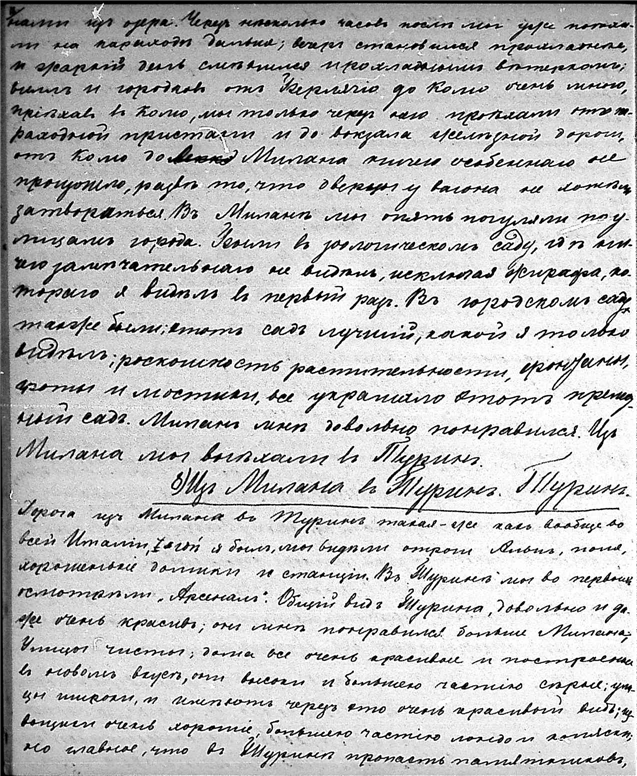 нами изъ озера. Черезъ нѣсколько часовъ послѣ мы уже
ли на пароходѣ дальше; вечеръ становился прохладнѣе,
и жаркій день смѣнился прохладнымъ вѣтеркомъ;
виллъ и городковъ отъ до Комо очень много,
пріѣхавъ въ Комо, мы только черезъ него проѣхали отъ па-
роходной пристани и до вокзала желѣзной дороги,
отъ Комо до Милана ничего особеннаго не
произошло, развѣ то, что дверцы у вагона не
затворяться. Въ Миланѣ мы опять погуляли по у-
лицамъ города. Были въ зоологическомъ саду, гдѣ ни-
чего замѣчательнаго не видѣлъ, исключая жирафа, ко-
тораго я видѣлъ въ первый разъ. Въ городскомъ саду
также были; этотъ садъ лучшій, какой я только
видѣлъ; роскошность растительности, фонтаны,
гроты и мостики, все украшало этотъ
садъ. Миланъ мнѣ довольно понравился. Изъ
Милана мы выѣхали въ Туринъ.
8) Изъ Милана въ Туринъ. Туринъ.
Дорога изъ Милана въ Туринъ такая-же какъ вообще во
всей Италіи, я былъ, мы видѣли отроги Альпъ, поля,
хорошенькіе домики и станціи. Въ Туринѣ мы во первыхъ
осмотрѣли „Арсеналъ“. Общій видъ Турина, довольно и да-
же очень красивъ; онъ мнѣ понравился больше Милана;
Улицы чисты; дома все очень красивые и построены
въ новомъ вкусѣ, они высоки и большею частію сѣрые; ули-
цы широки, и имѣютъ черезъ это очень красивый видъ; из-
вощики очень хорошіе, большею частію ландо и коляски,
но главное, что въ Туринѣ пропасть памятниковъ,